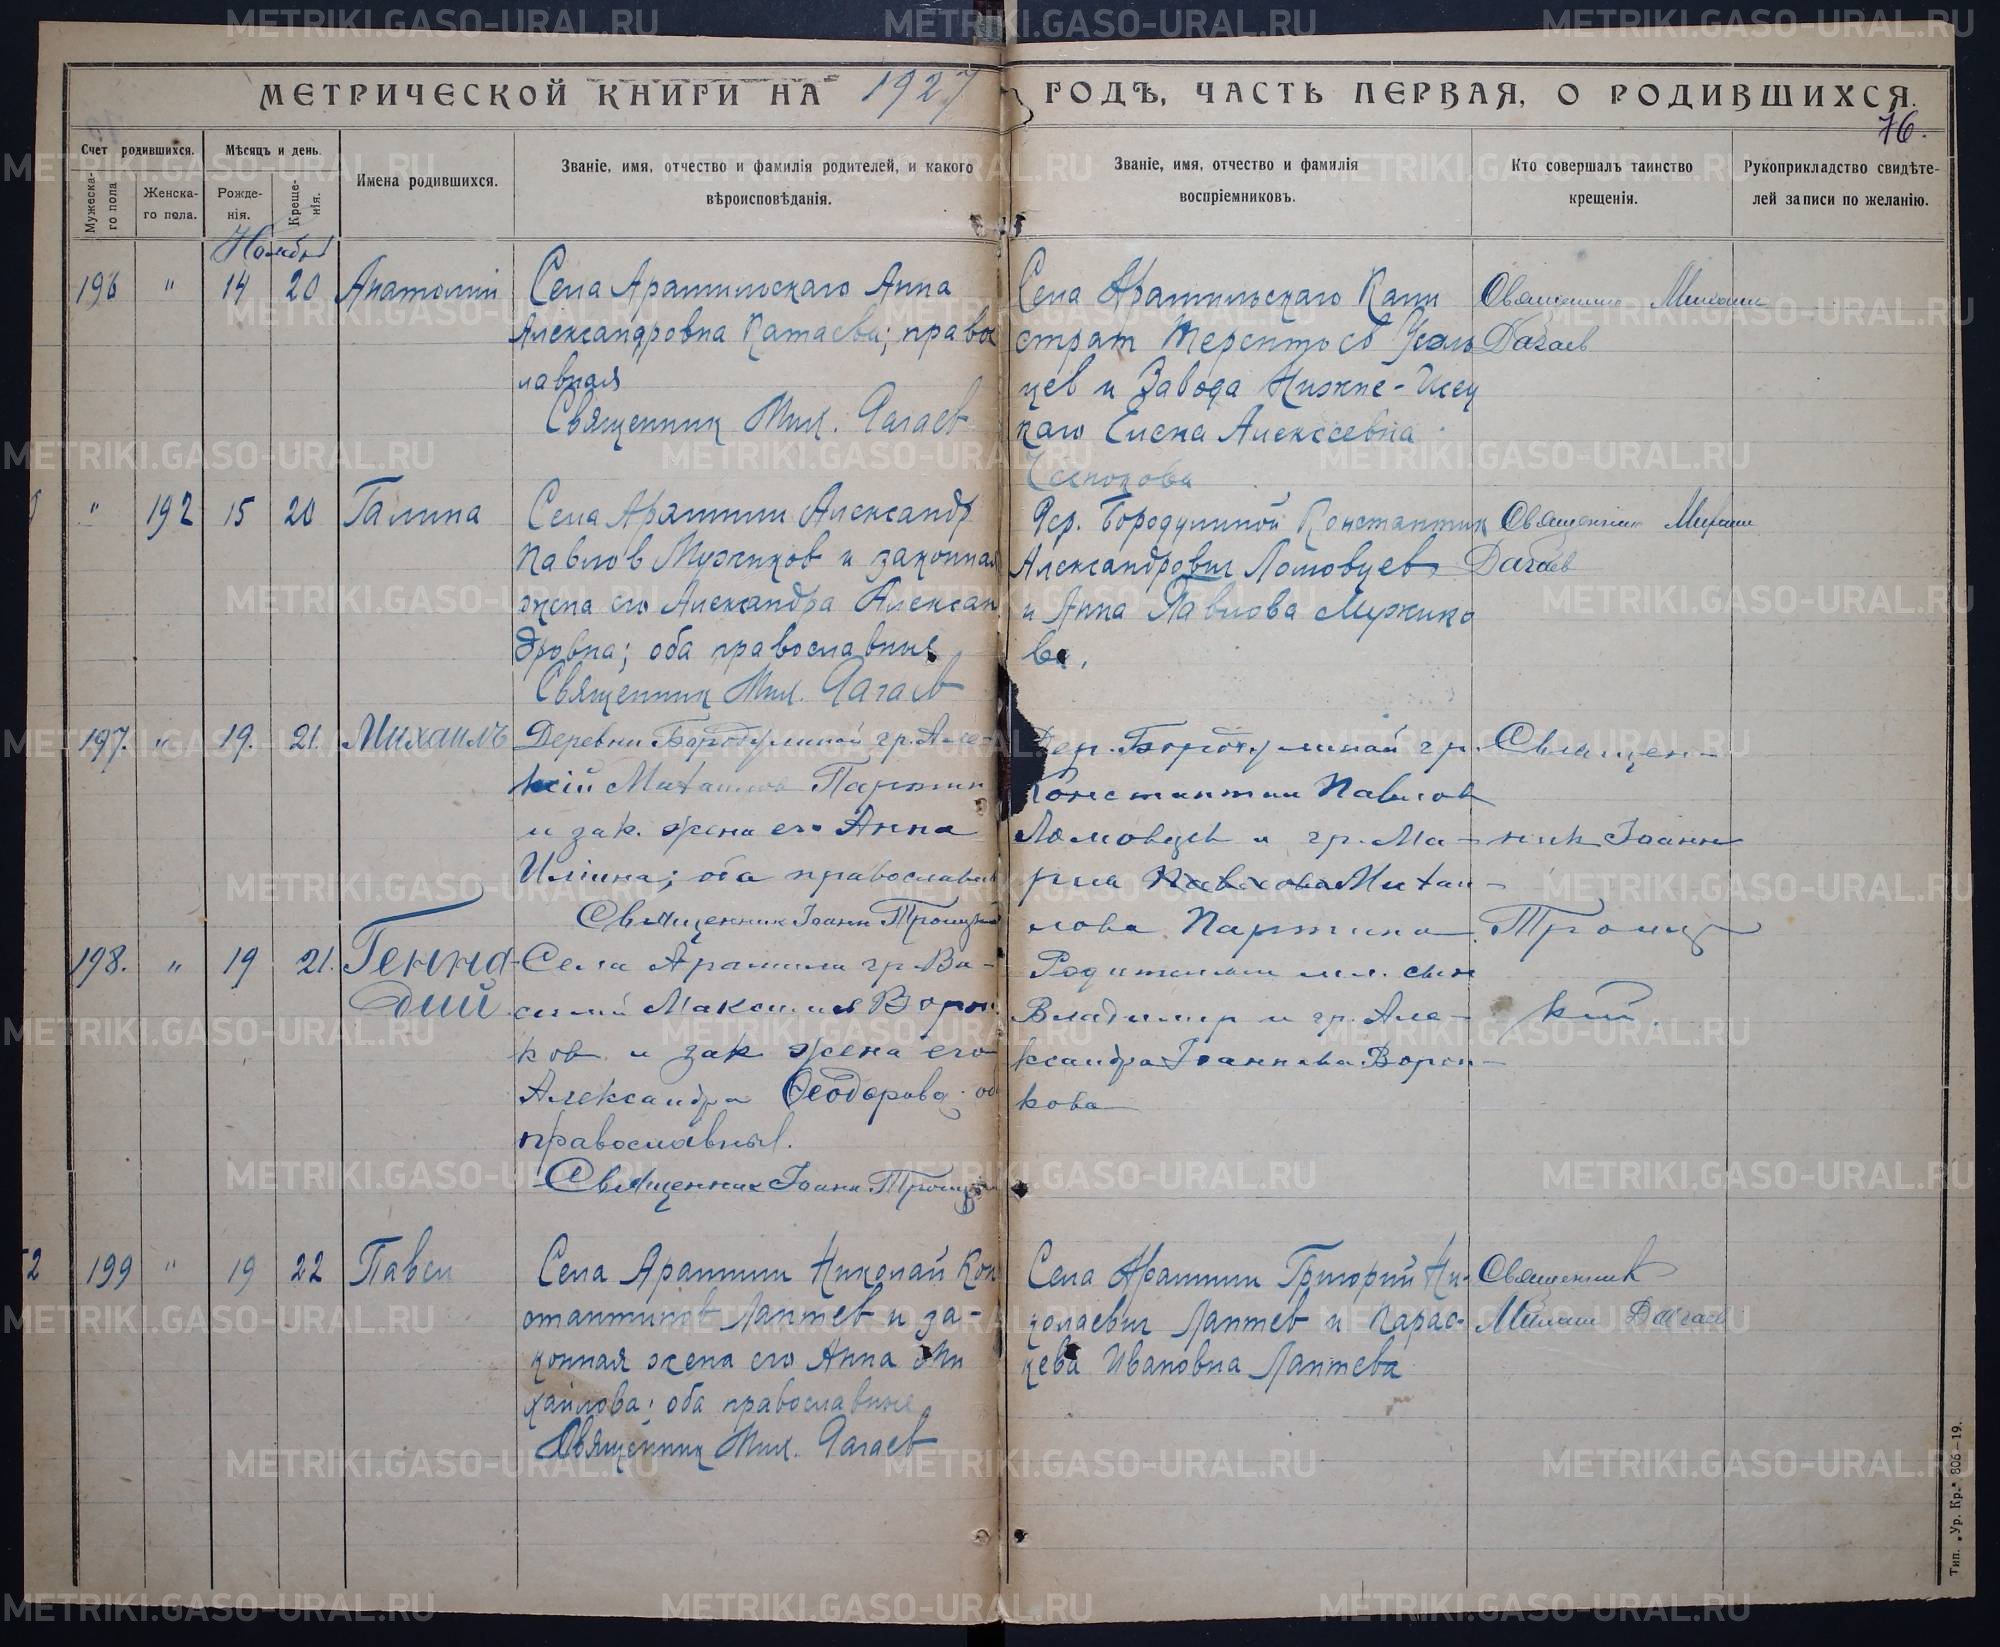 МЕТРИЧЕСКОЙ КНИГИ НА 1927 ГОДЪ, ЧАСТЬ ПЕРВАЯ, О РОДИВШИХСЯ.
76.
Счет родившихся.
Мѣсяцъ и день.
Имена родившихся.
Званіе, имя, отчество и фамилія родителей, и какого
вѣроисповѣданія.
Званіе, имя, отчество и фамилія
воспріемниковъ.
Кто совершалъ таинство
крещенія.
Рукоприкладство свидѣте-
лей записи по желанію.
Мужеска-
го пола
Женска-
го пола.
Рожде-
нія.
Креще-
нія.
Ноябрь
196 " 14 20 Анатолий
Села Арамильскаго Анна
Александровна Катаева; правос
лавная
Священник Мих. Дагаев
Села Арамильскаго Кали
страт Терентьев
цев и Завода Нижне-Исец
каго Елена Алексеевна
Священник Михаил
Дагаев
" 192 15 20 Галина
Села Арамили Александр
Павлов Мужиков и законная
жена его Александра Алексан
дровна; оба православные
Священник Мих. Дагаев
Дер. Бородулиной Константин
Александрович Ломовцев
и Анна Павлова Мужико
ва.
Священник Михаил
Дагаев
197. " 19. 21. Михаилъ
Деревни Бородулиной гр. Але-
ксій Михаилов Партин
и зак. жена его Анна
Иліина; оба православные
Священник Іоанн Троицкий
Дер. Бородулиной гр.
Константин Павлов
Ломовцев и гр. Ма-
рия Михаи-
лова Партина
Священ-
ник Іоанн
Троиц
кий.
198. " 19 21. Генна-
дий
Села Арамили гр. Ва-
силий Максимов Ворон
ков и зак жена его
Александра Феодорова об
православный.
Священник Іоанн Троицкий
Родители мл. сын
Владимир и гр. Але-
ксандра Іоаннова Ворон-
кова
199 " 19 22 Павел
Села Арамили Николай Кон
стантинов Лаптев и за-
конная жена его Анна Ми
хайлова; оба православные
Священник Мих. Дагаев
Села Арамили Григорий Ни-
колаевич Лаптев и Парас-
кева Ивановна Лаптева
Священник
Михаил Дагаев
Тип. „Ур. Кр.“ 806—19.
METRIKI.GASO-URAL.RU